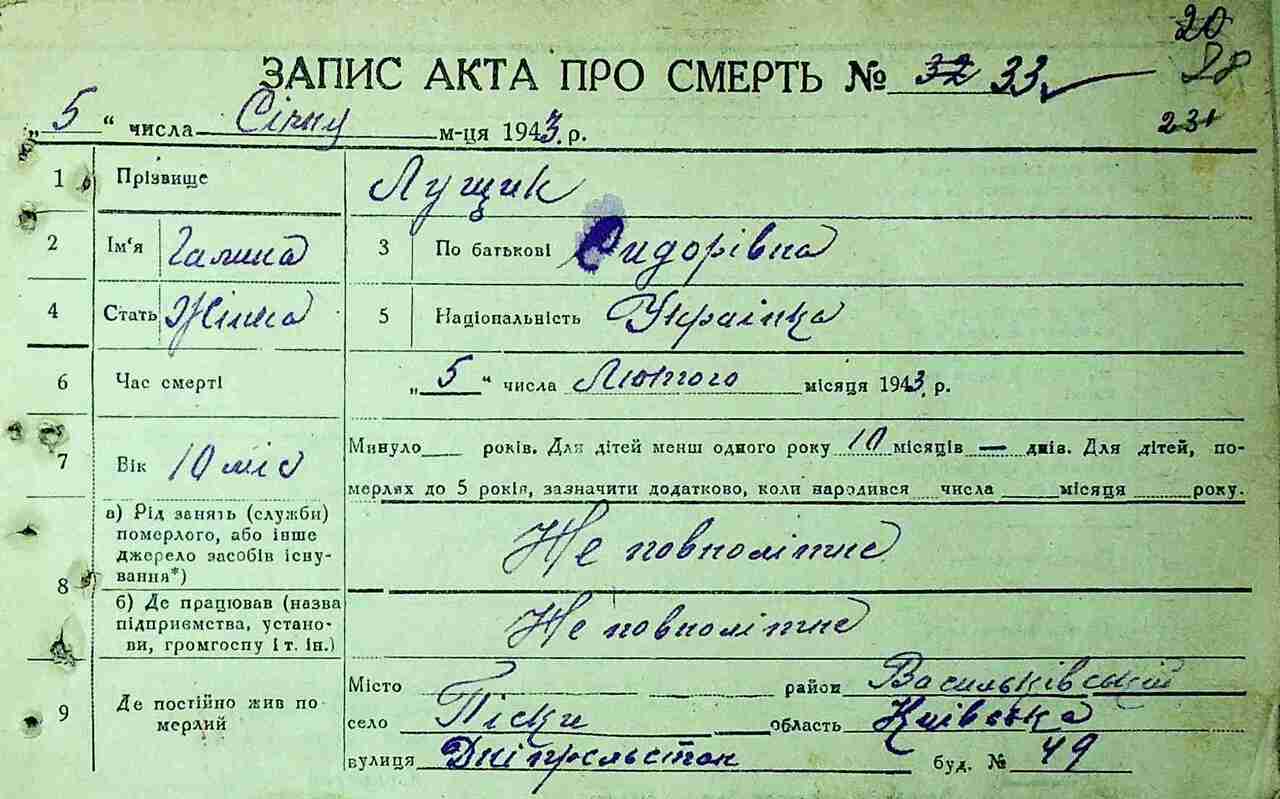 20
28
ЗАПИС АКТА ПРО СМЕРТЬ № 32 33
231
„ 5 “ числа Січну м-ця 1943 р.
1 Прізвище Лущик
2 Ім'я Галина 3 По батькові Сидорівна
4 Стать Жінка 5 Національність Українка
6 Час смерті „ 5 “ числа Лютого місяця 1943 р.
7 Вік 10 міс Минуло років. Для дітей менш одного року 10 місяців — днів. Для дітей, по-
мерлих до 5 років, зазначити додатково, коли народився числа місяця року.
8 а) Рід занять (служби)
померлого, або інше
джерело засобів існу-
вання*)
Не повнолітнє
б) Де працював (назва
підприємства, устано-
ви, громгоспу і т. ін.)
Не повнолітнє
9 Де постійно жив по-
мерлий
Місто район Васильківський
село Піски область Київська
вулиця буд. № 49